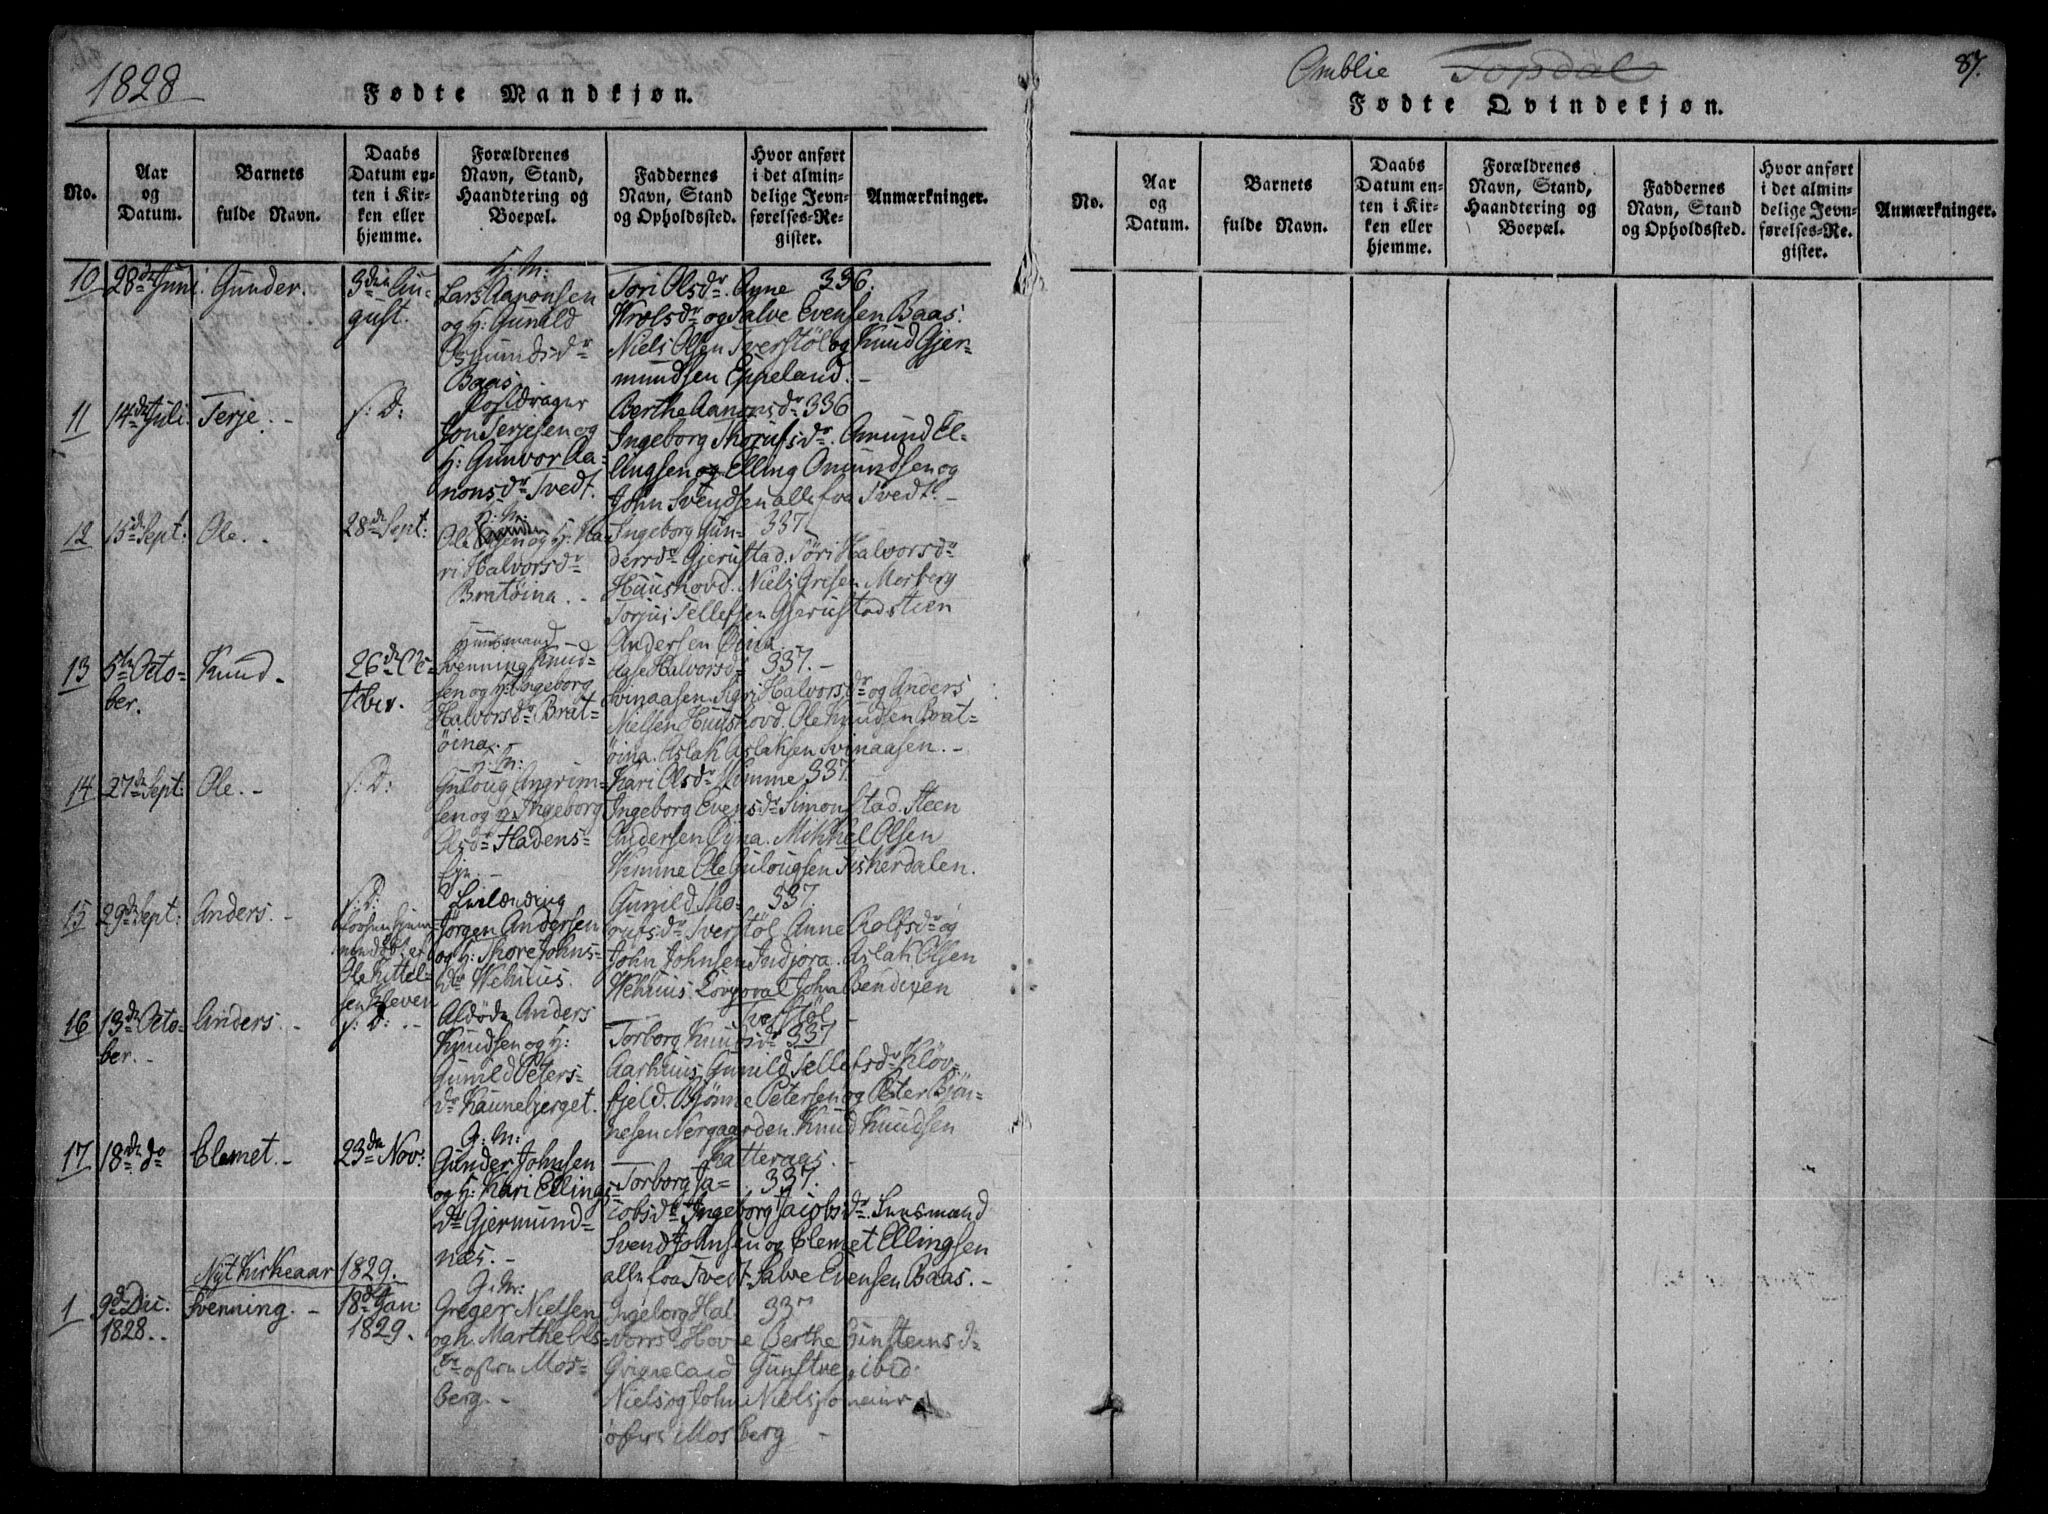 1828
Fødte Mandkjøn.
No.
Aar
og
Datum.
Barnets
fulde Navn.
Daabs
Datum en-
ten i Kir-
ken eller
hjemme.
Forældrenes
Navn, Stand,
Haandtering og
Boepæl.
Faddernes
Navn, Stand
og Opholdssted.
Hvor anført
i det almin-
delige Jevn-
førelses-Re-
gister.
Anmærkninger.
10
28de Juni
Gunder.
3die Au-
gust.
H: M:
Lars Aanonsen
og H: Gunild
Osmundsdr
Baas.
Tori Olsdr. Anne 336.
og Salve Evensen Baas.
Niels Olsen Tverstöl og Knud Gjer-
mundsen Eppeland. -
11
14de Juli.
Terje. -
s: D:
Postdrager
Jon Terjesen og
H: Gunvor Aa-
nonsdr Tvedt.
Berthe Aanonsdr 336
Ingeborg Thorufsdr. Omund El-
lingsen og Elling Omundsen og
John Svendsen alle fra Tvedt. -
12
15de Sept:
Ole. -
28de Sept:
G: M:
Ole og H: Ka-
ri Halvorsdr
Bratöina. -
Ingeborg Gun- 337
dersdr Gjerustad. Töri Halvorsdr
Huushovd. Niels Gresen Mosberg
Torjus Tellefsen Gjerustad Steen
Andersen Öina.
13
5te Octo-
ber.
Knud -
26de Oc-
tober.
Huusmand
Svenning Knud-
sen og H: Ingeborg
Halvorsdr Brat-
öina.
Aase Halvorsdr 337. -
Svinaasen. Sigri Halvorsdr og Anders
Nielsen Huushovd. Ole Knudsen Brat-
öina. Aslak Aslaksen Svinaasen. -
14
27de Sept:
Ole. -
s: D:
H: M:
Guloug Angrim-
sen og H: Ingeborg
Olsdr Hadens-
Kari Olsdr Himme 337.
Ingeborg Evensdr Simonstad. Steen
Andersen Öyna. Mikkel Olsen
Himme Ole Gulougsen Fiskerdalen.
15
29de Sept:
Anders. -
s: D:
Ole Kittel-
sen Kleven
Leilænding
Jörgen Andersen
og H: Thore Johns-
dr Wehuus.
Gunild Tho- 337.
rufsdr Tverstöl Anne Rolfsdr og
John Johnsen Indjora. Aslak Olsen
Wehuus. John Bendixen
Tverstöl
16
13de Octo-
ber. -
Anders. -
s: D: -
Afdöde Anders
Knudsen og H:
Gunild Peters-
dr Haunebjerget.
Torborg Knudsdr 337
Aarhuus Gunild Tellefsdr Klöv-
fjeld. Bjönne Petersen og Peter Bjön-
nesen Nergaarden. Knud Knudsen
Katteraas. -
17
18de do
Clemet. -
23de Nov:
G: M:
Gunder Johnsen
og H: Kari Ellings-
dr Gjermund-
næs. -
Torborg Ja- 337.
cobsdr Ingeborg Jacobsdr. Lensmand
Svend Johnsen og Clemet Ellingsen
alle fra Tvedt Salve Evensen Baas. -
Nyt Kirkeaar 1829.
1
9de Dec:
1828. -
Svenning. -
18de Jan:
1829.
G: M:
Greger Nielsen
og h. Marthe Ols-
dr Mos-
berg. -
Ingeborg Hal 337
Berthe Gunsteinsdr
ibid.
Niels og John Niels
Mosberg -
Omblie
Topdal
87.
Fødte Qvindekjøn.
No.
Aar
og
Datum.
Barnets
fulde Navn.
Daabs
Datum en-
ten i Kir-
ken eller
hjemme.
Forældrenes
Navn, Stand,
Haandtering og
Boepæl.
Faddernes
Navn, Stand
og Opholdssted.
Hvor anført
i det almin-
delige Jevn-
førelses-Re-
gister.
Anmærkninger.